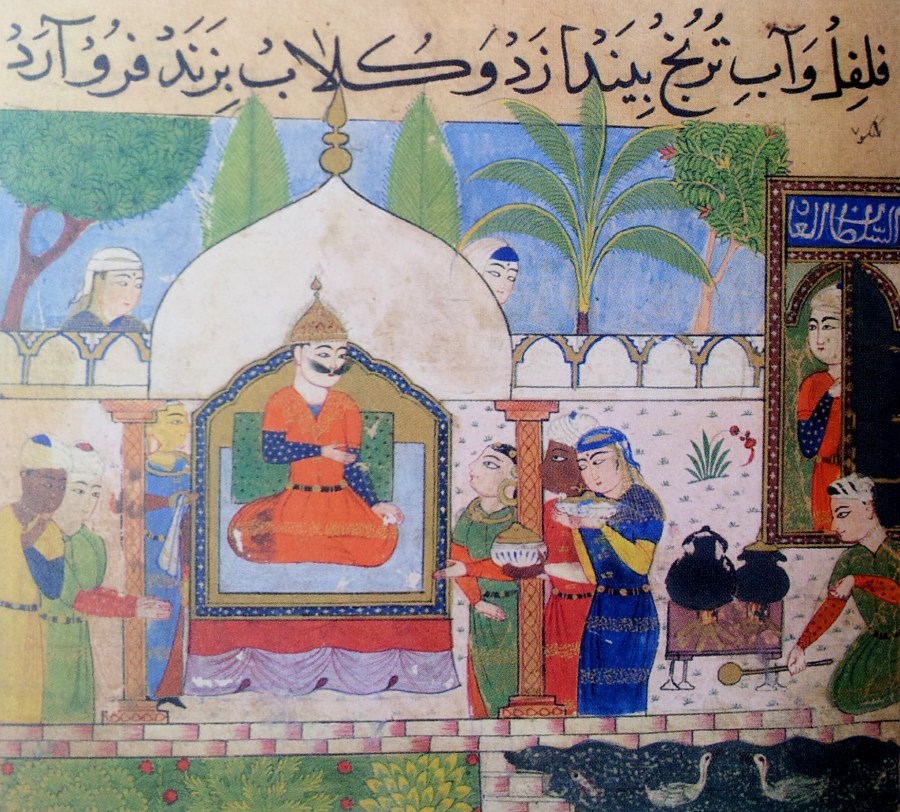 فلفل وَآبِ تُرُنْجْ بِینْدازَدْ وَکُلابْ بِزَنَدْ فرُوْ آرَدْ
السلطان